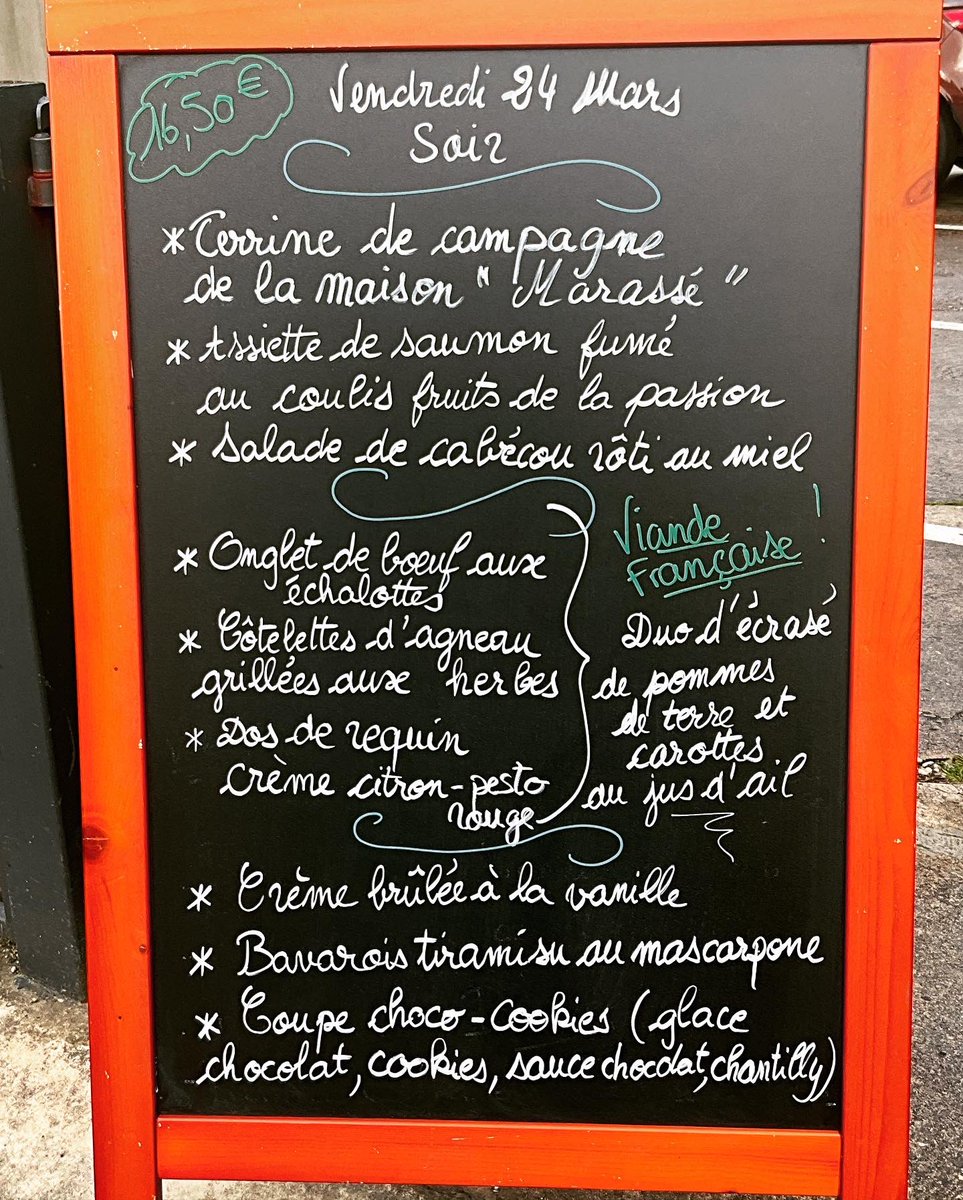 16,50€
Vendredi 24 Mars
Soir
* Terrine de campagne
de la maison "Marassé"
* Assiette de saumon fumé
au coulis fruits de la passion
* Salade de cabécou rôti au miel
* Onglet de bœuf aux
échalottes
* Côtelettes d'agneau
grillées aux herbes
* Dos de requin
crème citron-pesto
rouge
Viande
Française !
Duo d'écrasé
de pommes
de terre et
carottes
au jus d'ail
* Crème brûlée à la vanille
* Bavarois tiramisu au mascarpone
* Coupe choco-cookies (glace
chocolat, cookies, sauce chocolat, chantilly)